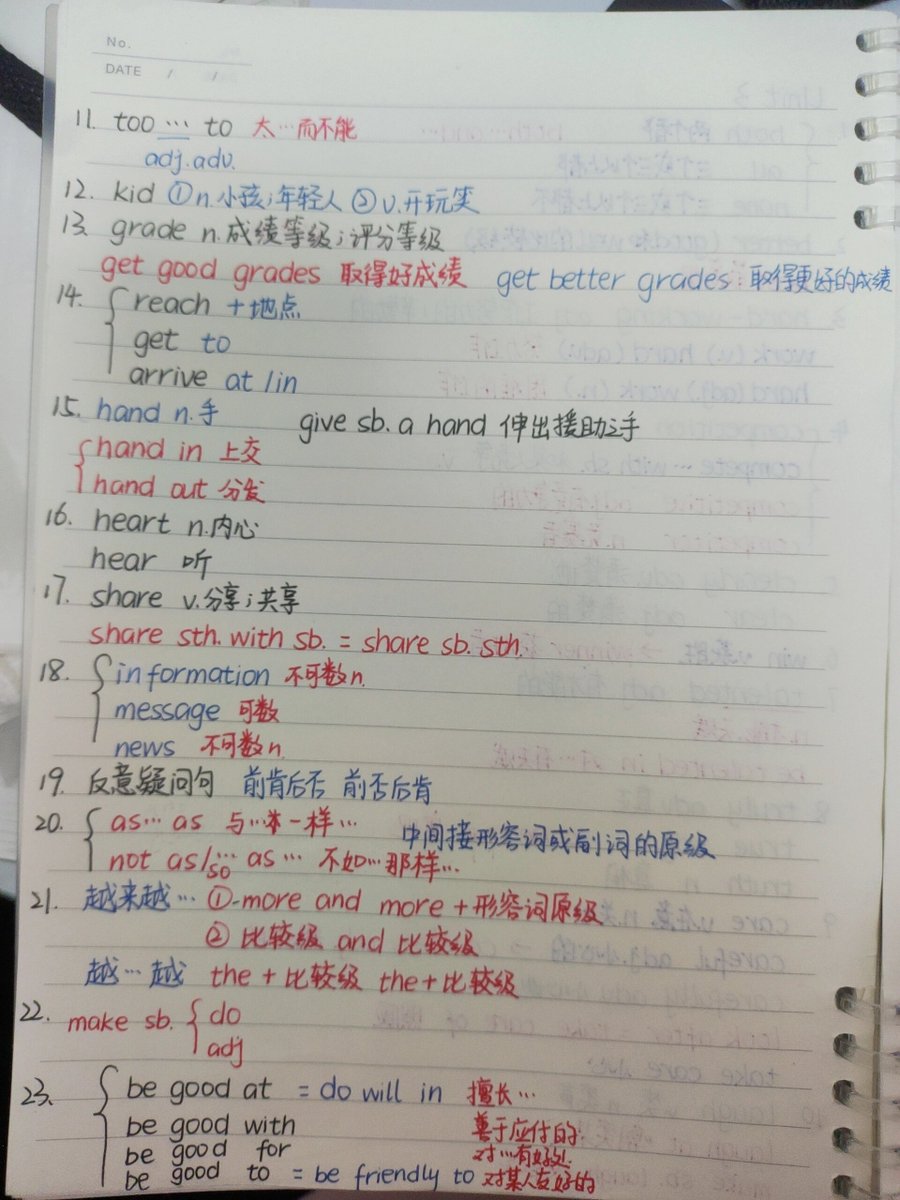 No.
DATE / /
11. too … to 太…而不能
adj.adv.
12. kid ①n.小孩;年轻人 ②v.开玩笑
13. grade n.成绩等级;评分等级
get good grades 取得好成绩 get better grades:取得更好的成绩
14. { reach +地点
get to
arrive at /in
15. hand n.手 give sb. a hand 伸出援助之手
{ hand in 上交
hand out 分发
16. heart n.内心
hear 听
17. share v.分享;共享
share sth. with sb. = share sb. sth.
18. { information 不可数n.
message 可数
news 不可数n.
19. 反意疑问句 前肯后否 前否后肯
20. { as… as 与…一样… 中间接形容词或副词的原级
not as/so… as … 不如…那样…
21. 越来越… ①-more and more + 形容词原级
② 比较级 and 比较级
越…越 the + 比较级 the + 比较级
22. make sb. { do
adj
23. { be good at = do will in 擅长…
be good with 善于应付的
be good for 对…有好处
be good to = be friendly to 对某人友好的